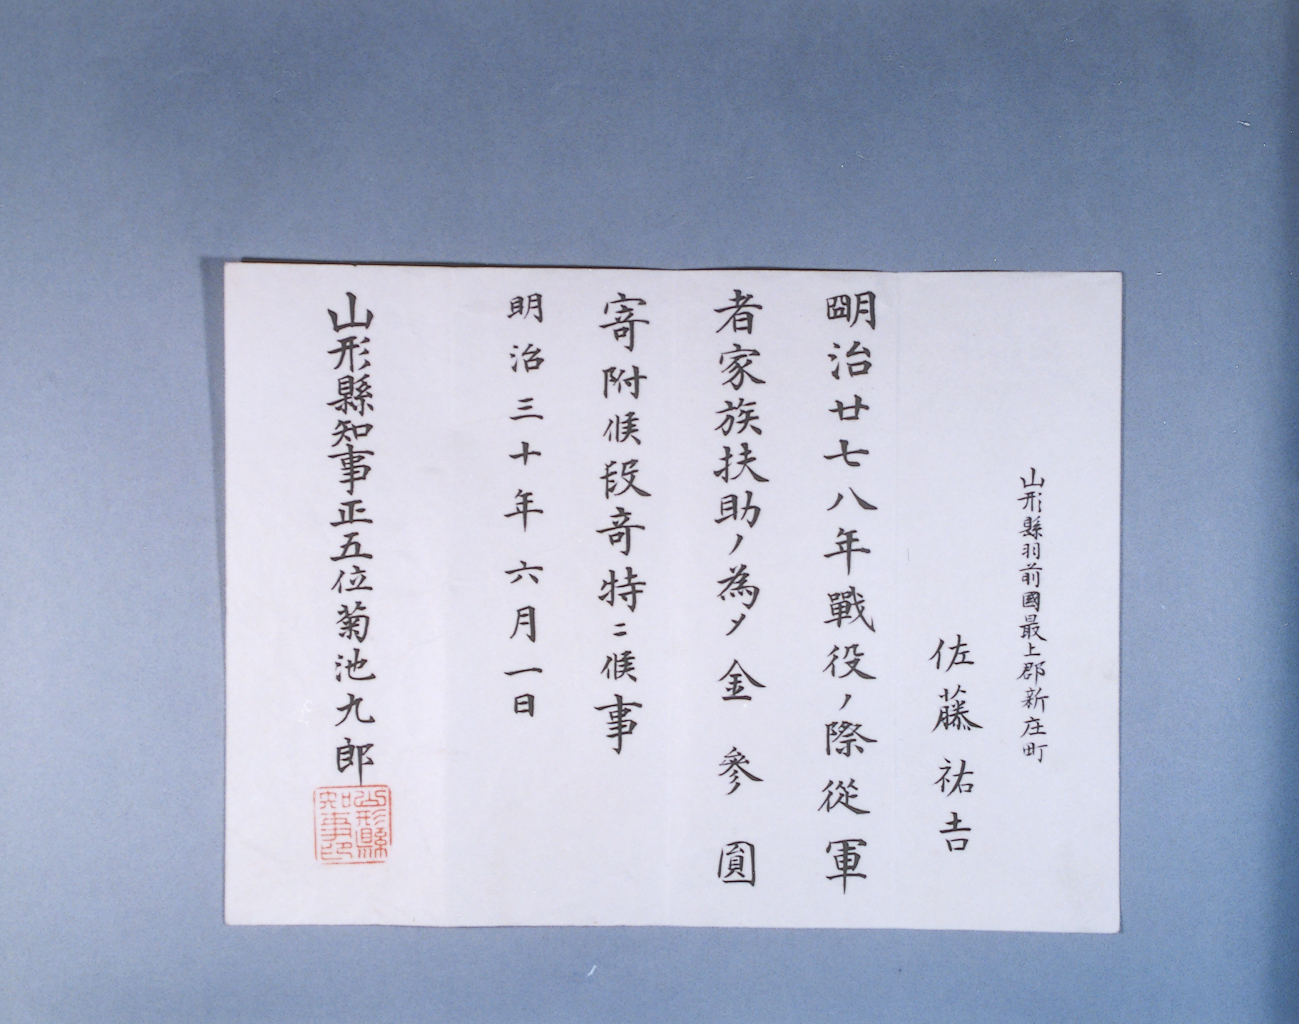 山形縣羽前國最上郡新庄町
佐藤祐吉
明治廿七八年戰役ノ際從軍
者家族扶助ノ為メ金參圓
寄附候段竒特ニ候事
明治三十年六月一日
山形縣知事正五位菊池九郎
山形縣
知事印